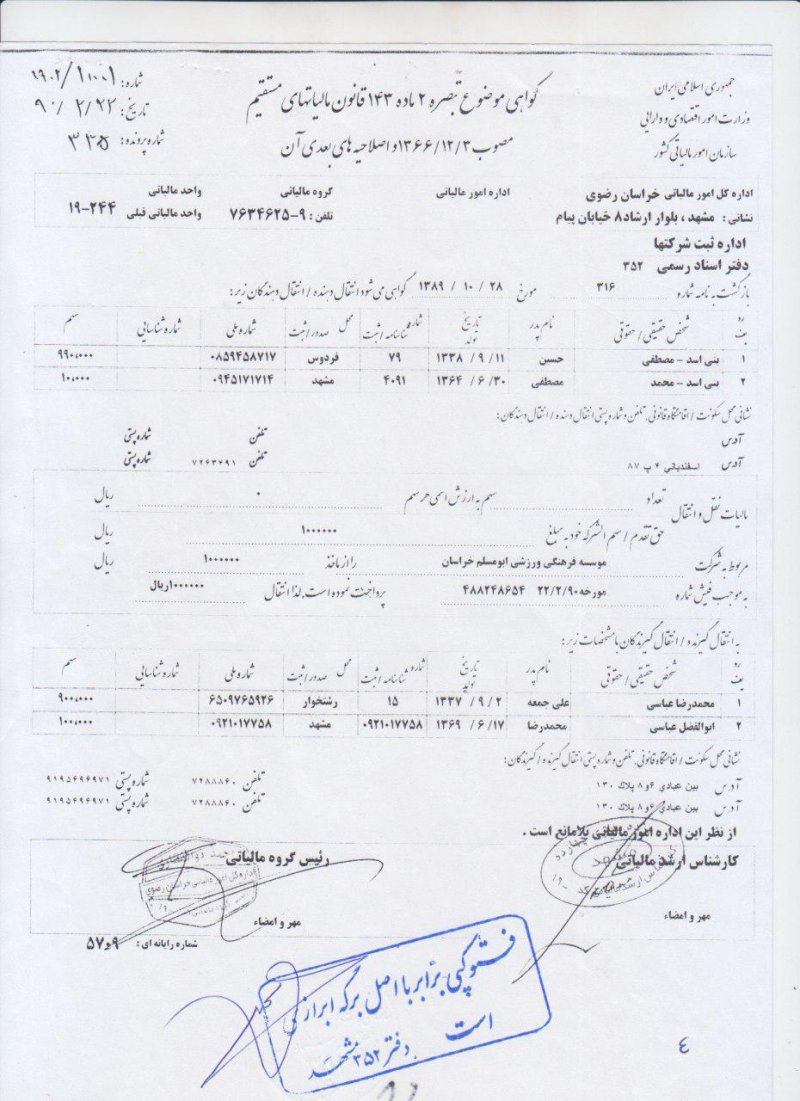 جمهوری اسلامی ایران
وزارت امور اقتصادی و دارایی
سازمان امور مالیاتی کشور
گواهی موضوع تبصره ۲ ماده ۱۴۳ قانون مالیاتهای مستقیم
مصوب ۱۳۶۶/۱۲/۳ و اصلاحیه های بعدی آن
شماره:
تاریخ: ۹۰/۲/۲۲
شماره پرونده: ۳۳۵
اداره کل امور مالیاتی خراسان رضوی اداره امور مالیاتی گروه مالیاتی واحد مالیاتی
نشانی : مشهد ، بلوار ارشاد۸ خیابان پیام تلفن : ۹-۷۶۳۴۶۲۵ واحد مالیاتی قبلی ۲۴۴-۱۹
اداره ثبت شرکتها
دفتر اسناد رسمی ۳۵۲
بازگشت به نامه شماره ۳۱۶ مورخ ۲۸ / ۱۰ / ۱۳۸۹ گواهی می شود انتقال دهنده / انتقال دهندگان زیر:
ردیف شخص حقیقی / حقوقی نام پدر تاریخ تولد شماره شناسنامه / ثبت محل صدور / ثبت شماره ملی شماره شناسایی سهم
۱ بنی اسد - مصطفی حسین ۱۱ / ۹ / ۱۳۳۸ ۷۹ فردوس ۰۸۵۹۴۵۸۷۱۷ ۹۹۰،۰۰۰
۲ بنی اسد - محمد مصطفی ۳۰ / ۶ / ۱۳۶۴ ۴۰۹۱ مشهد ۰۹۴۵۱۷۱۷۱۴ ۱۰،۰۰۰
نشانی محل سکونت / اقامتگاه قانونی، تلفن و شماره پستی انتقال دهنده / انتقال دهندگان:
آدرس تلفن شماره پستی
آدرس اسفندیانی ۴ پ ۸۷ تلفن ۷۲۶۳۶۹۱ شماره پستی
مالیات نقل و انتقال تعداد سهم به ارزش اسمی هر سهم ۰ ریال
حق تقدم / سهم الشرکه خود به مبلغ ۱۰۰۰۰۰۰ ریال
مربوط به شرکت موسسه فرهنگی ورزشی ابومسلم خراسان را از ماخذ ۱۰۰۰۰۰۰ ریال
به موجب فیش شماره ۴۸۸۲۴۸۶۵۴ مورخه ۲۲/۲/۹۰ پرداخت نموده است، لذا انتقال ۱۰۰۰۰۰۰ریال
به انتقال گیرنده / انتقال گیرندگان با مشخصات زیر:
ردیف شخص حقیقی / حقوقی نام پدر تاریخ تولد شماره شناسنامه / ثبت محل صدور / ثبت شماره ملی شماره شناسایی سهم
۱ محمدرضا عباسی علی جمعه ۲ / ۹ / ۱۳۳۷ ۱۵ رشتخوار ۶۵۰۹۷۶۵۹۲۶ ۹۰۰،۰۰۰
۲ ابوالفضل عباسی محمدرضا ۱۷ / ۶ / ۱۳۶۹ ۰۹۲۱۰۱۷۷۵۸ مشهد ۰۹۲۱۰۱۷۷۵۸ ۱۰۰،۰۰۰
نشانی محل سکونت / اقامتگاه قانونی، تلفن و شماره پستی انتقال گیرنده / گیرندگان:
آدرس بین عبادی ۶و۸ پلاک ۱۳۰ تلفن ۷۲۸۸۸۶۰ شماره پستی ۹۱۹۵۶۹۶۹۷۱
آدرس بین عبادی ۶و۸ پلاک ۱۳۰ تلفن ۷۲۸۸۸۶۰ شماره پستی ۹۱۹۵۶۹۶۹۷۱
از نظر این اداره امور مالیاتی بلامانع است .
کارشناس ارشد مالیاتی رئیس گروه مالیاتی
مهر و امضاء مهر و امضاء
شماره رایانه ای : ۵۷و۹
فتوکپی برابر با اصل برگه ابرازی
است
دفتر ۳۵۲ مشهد
۴